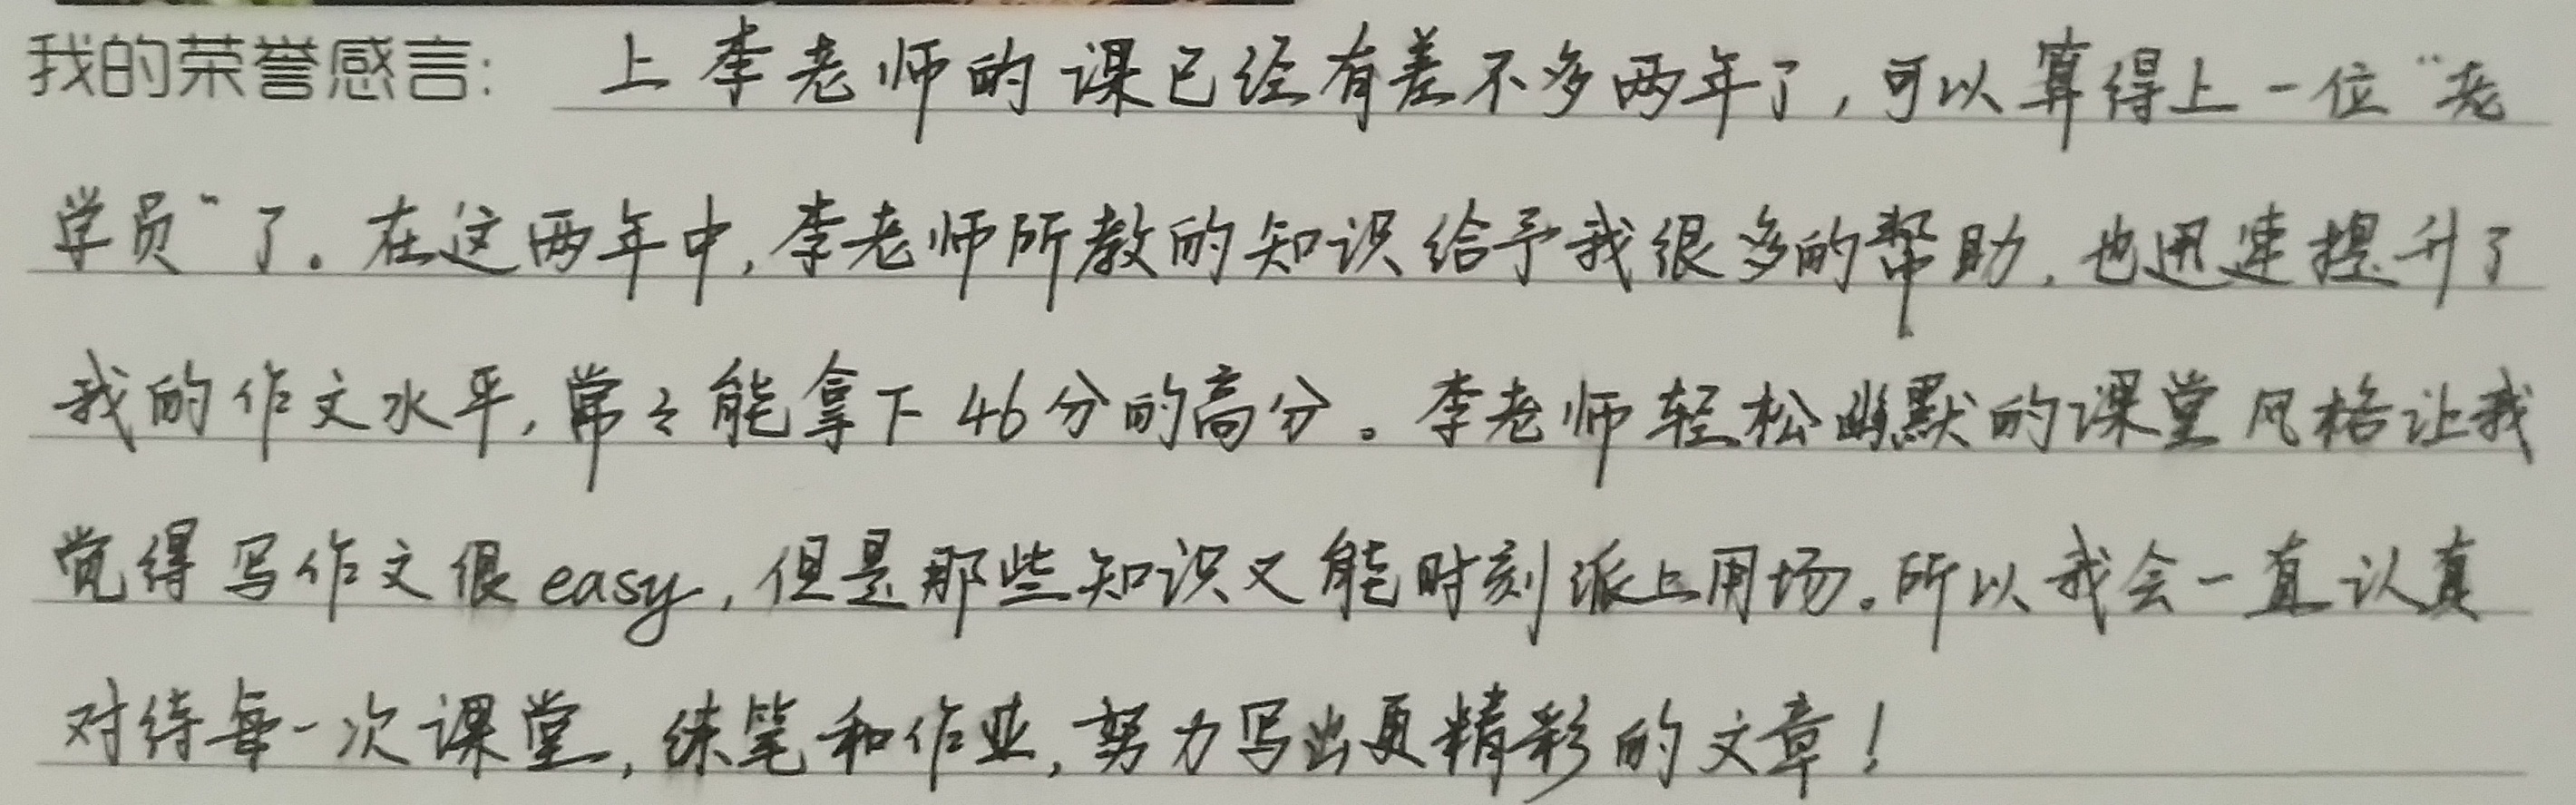 我的荣誉感言: 上李老师的课已经有差不多两年了,可以算得上一位“老
学员”了。在这两年中,李老师所教的知识给予我很多的帮助,也迅速提升了
我的作文水平,常々能拿下46分的高分。李老师轻松幽默的课堂风格让我
觉得写作文很easy,但是那些知识又能时刻派上用场。所以我会一直认真
对待每一次课堂,练笔和作业,努力写出更精彩的文章!